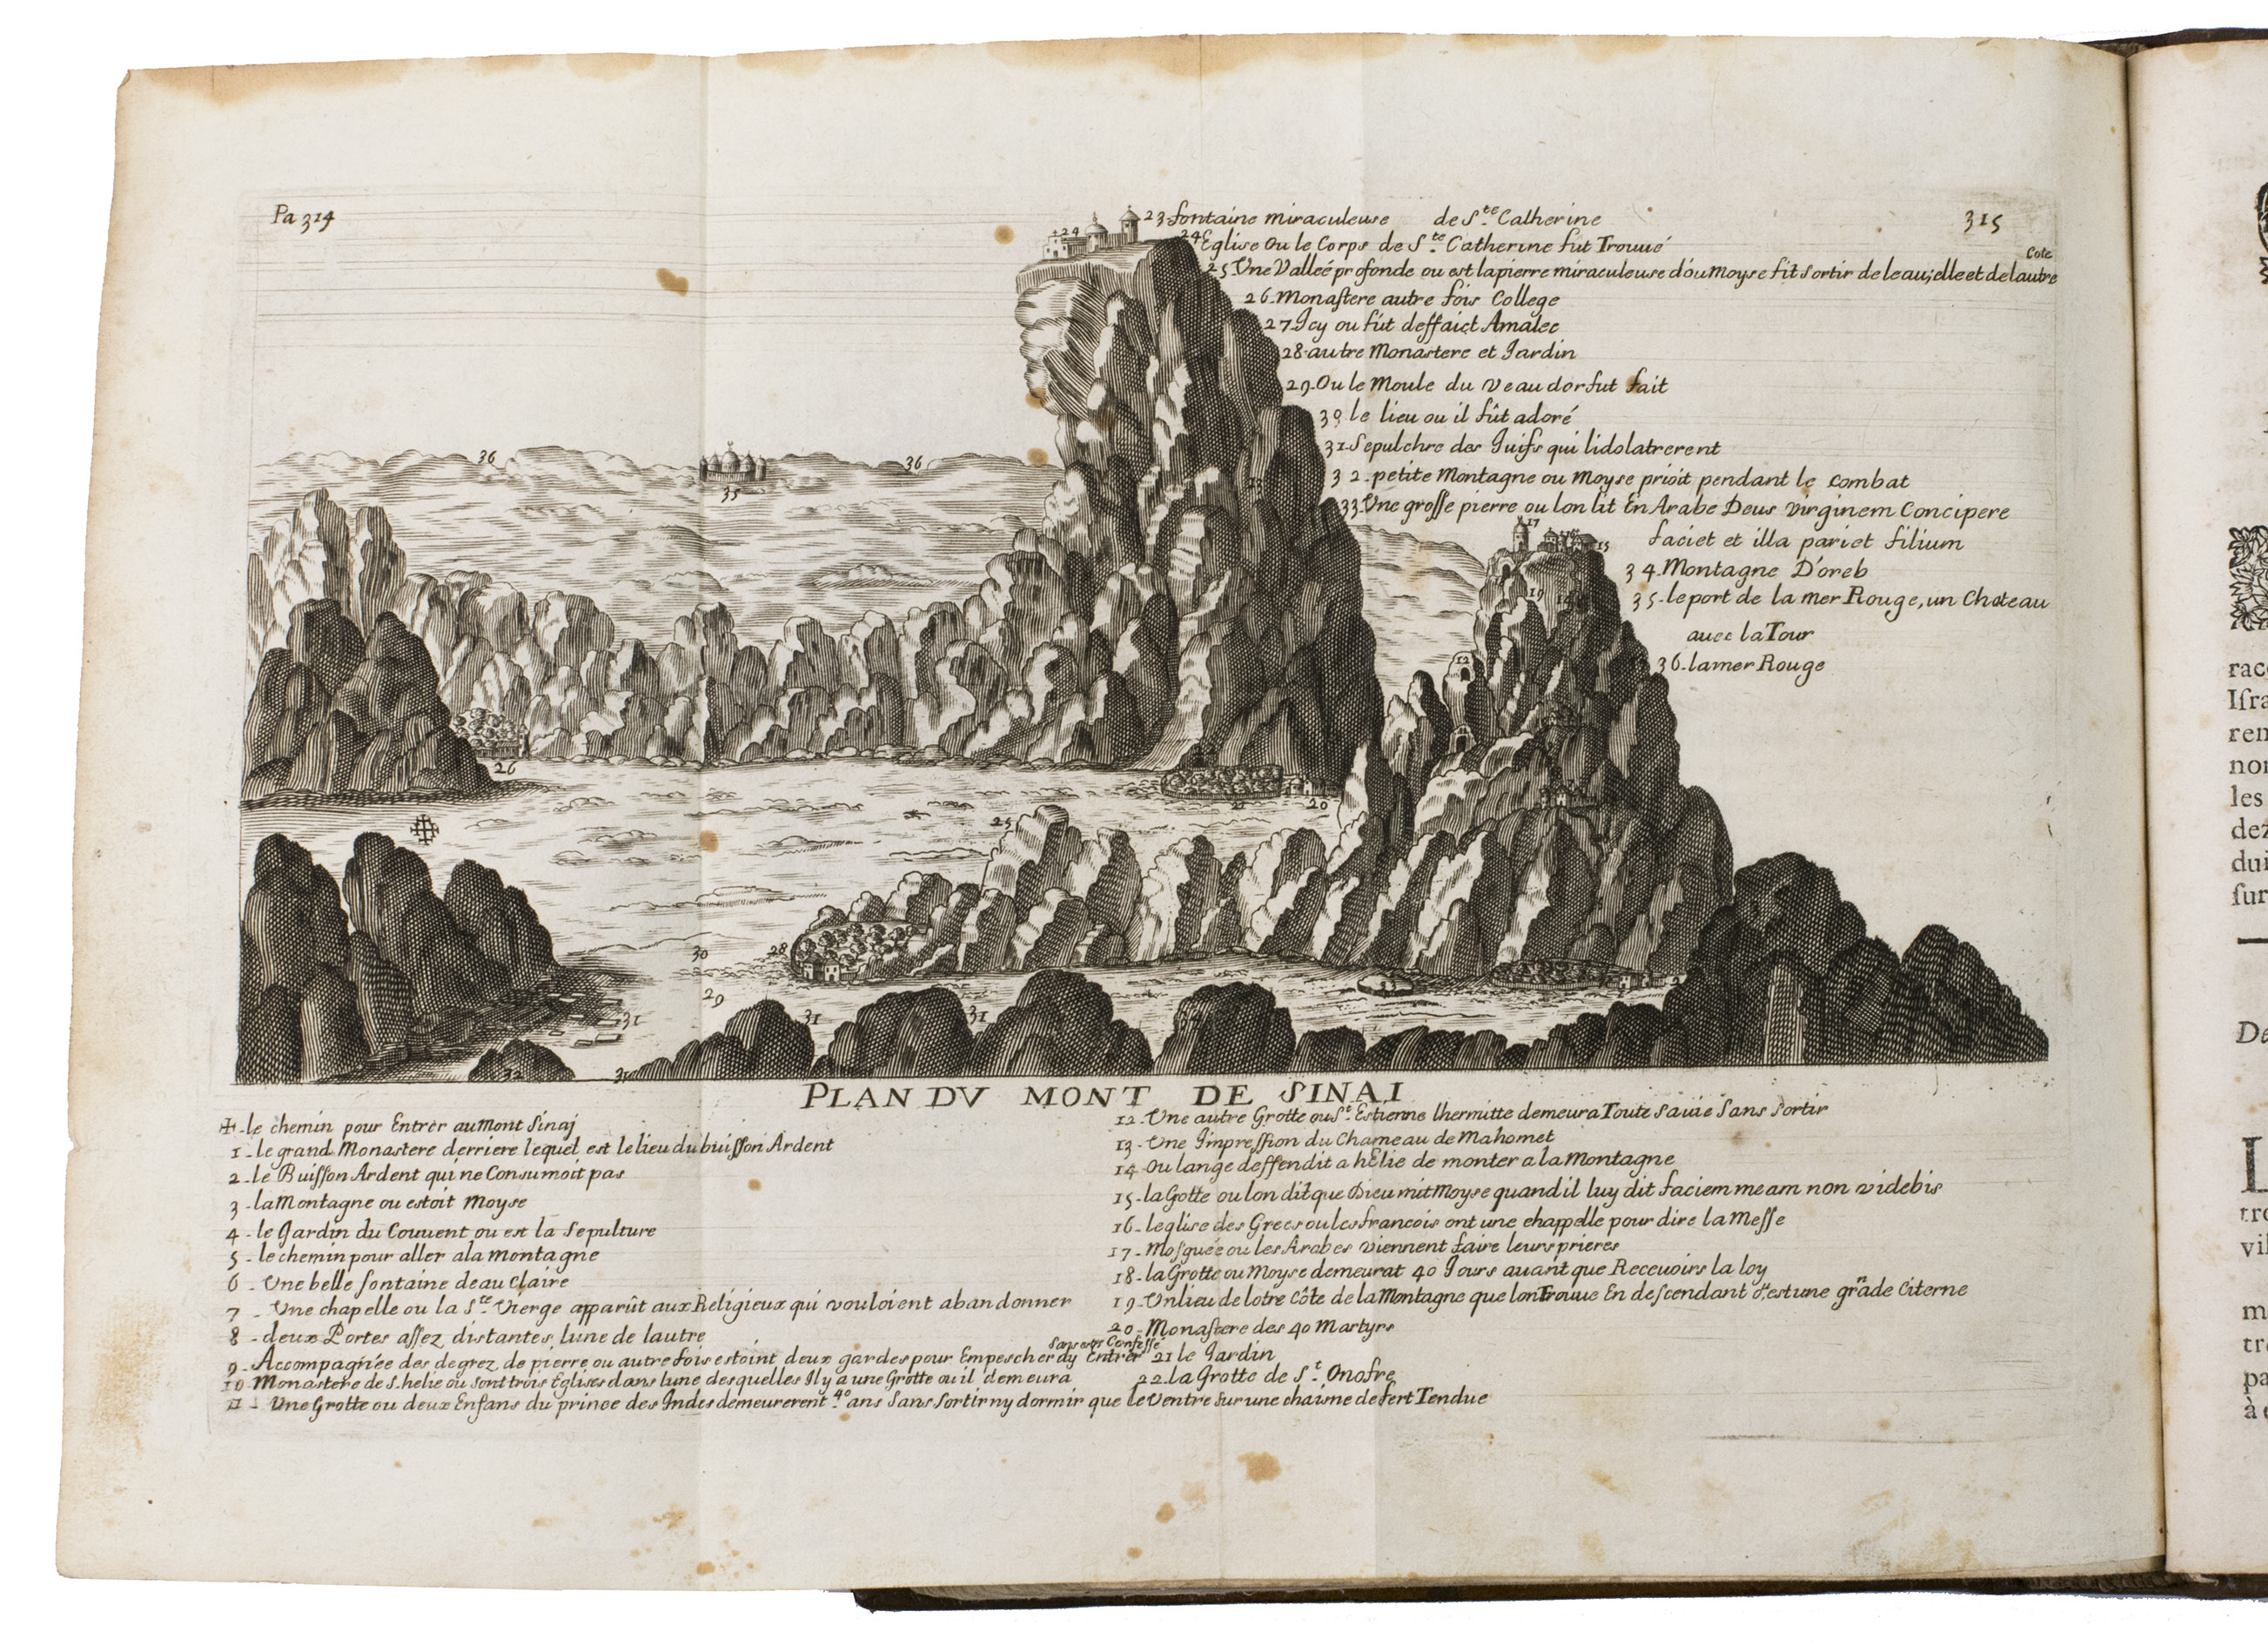 Pa 314
315
23-fontaine miraculeuse de S.te Catherine
24 Eglise Ou le Corps de S.te Catherine fut Trouué
25-Une Valleé profonde ou est la pierre miraculeuse dóu Moyse fit Sortir de leau, elle et de lautre Cote
26-Monastere autre fois College
27-Icy ou fút deffaict Amalec
28-autre Monastere et Jardin
29-Ou le Moule du Veau dor fut fait
30 le lieu ou il fût adoré
31-Sepulchre des Juifs qui lidolatrerent
32-petite Montagne ou Moyse prioit pendant le Combat
33-Une grosse pierre ou lon lit En Arabe Deus virginem Concipere
faciet et illa pariet filium
34-Montagne D'oreb
35-le port de la mer Rouge, un Chateau
auec la Tour
36-la mer Rouge
24
36
35
36
13
17
15
19
14
12
26
25
21
20
30
28
29
31
31
31
32
31
PLAN DV MONT DE SINAI
✠-le chemin pour Entrer au mont Sinaj
1-le grand Monastere derriere lequel est le lieu du buisson Ardent
2-le Buisson Ardent qui ne Consumoit pas
3-la Montagne ou estoit Moyse
4-le Jardin du Couuent ou est la Sepulture
5-le chemin pour aller a la montagne
6-Une belle fontaine deau Claire
7-Une chapelle ou la S.te Vierge apparût aux Religieux qui vouloient abandonner
8-deux Portes assez distantes lune de lautre
9-Accompagnée des degrez de pierre ou autre fois estoint deux gardes pour Empescher dy Entrer Sans estre Confessé
10-Monastere de S. helie ou sont trois Eglises dans lune desquelles Il y a une Grotte ou il demeura
11-Une Grotte ou deux Enfans du prince des Indes demeurerent 40 ans Sans Sortir ny dormir que le Ventre Sur une chaisne de fert Tendue
12-Une autre Grotte ou S.t Estienne lhermitte demeura Toute Sa uie Sans Sortir
13-Une Jmpression du Chameau de Mahomet
14-Ou lange deffendit a hElie de monter a la Montagne
15-la Gotte ou lon dit que Dieu mit Moyse quand il luy dit faciem meam non videbis
16-leglise des Grecs ou les francois ont une chappelle pour dire la Messe
17-Mosquée ou les Arabes viennent faire leurs prieres
18-la Grotte ou Moyse demeurat 40 Jours auant que Receuoirs la loy
19-Un lieu de lotre Côte de la Montagne que lon Trouue En descendant
est une grãde Citerne
20-Monastere des 40 Martyrs
21 le Jardin
22-la Grotte de S.t Onofre
rac
Isra
ren
non
les
dez
dui
sur
De
L
tro
vil
m
tre
pa
à